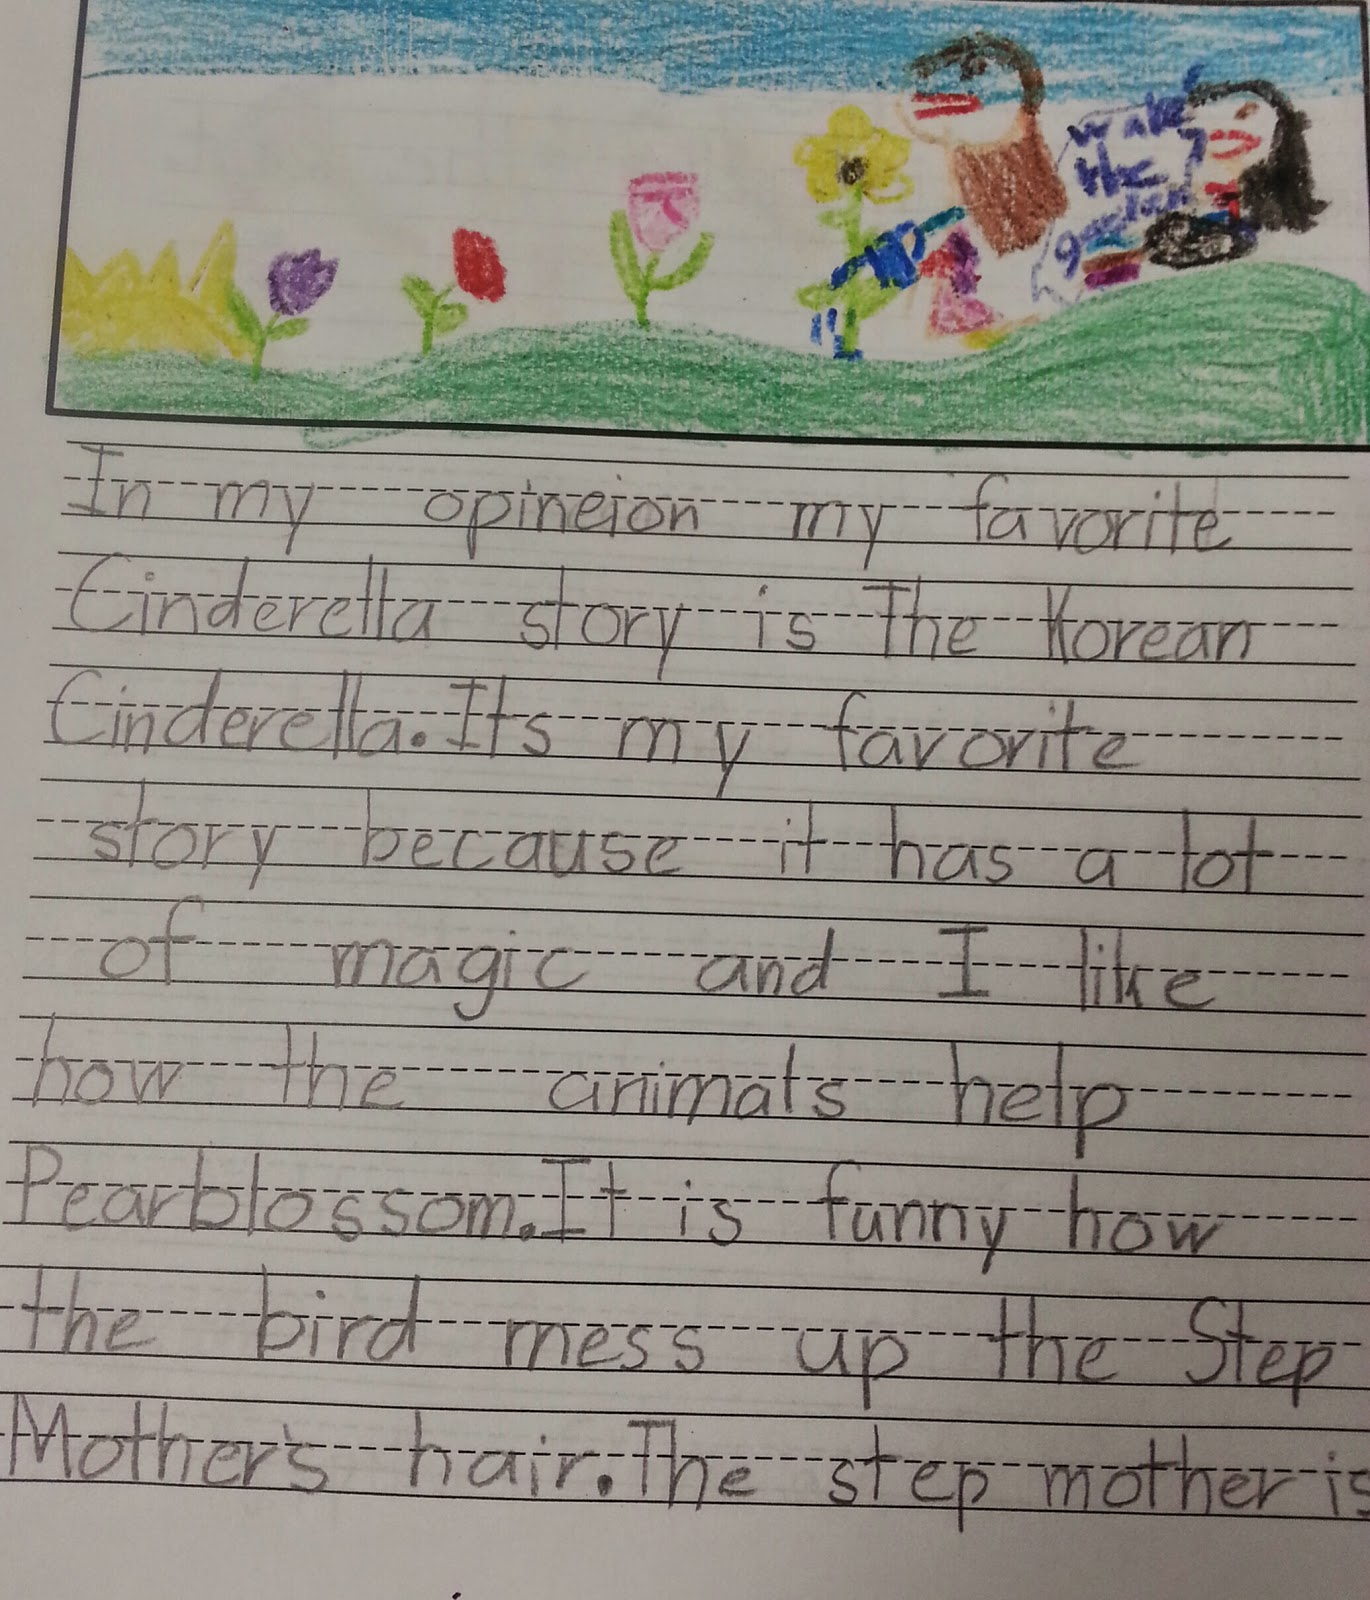 the
In my opineion my favorite
Cinderella story is The Korean
Cinderella. Its my favorite
story because it has a lot
of magic and I like
how the animals help
Pearblossom. It is funny how
the bird mess up the Step
Mother's hair. The step mother is